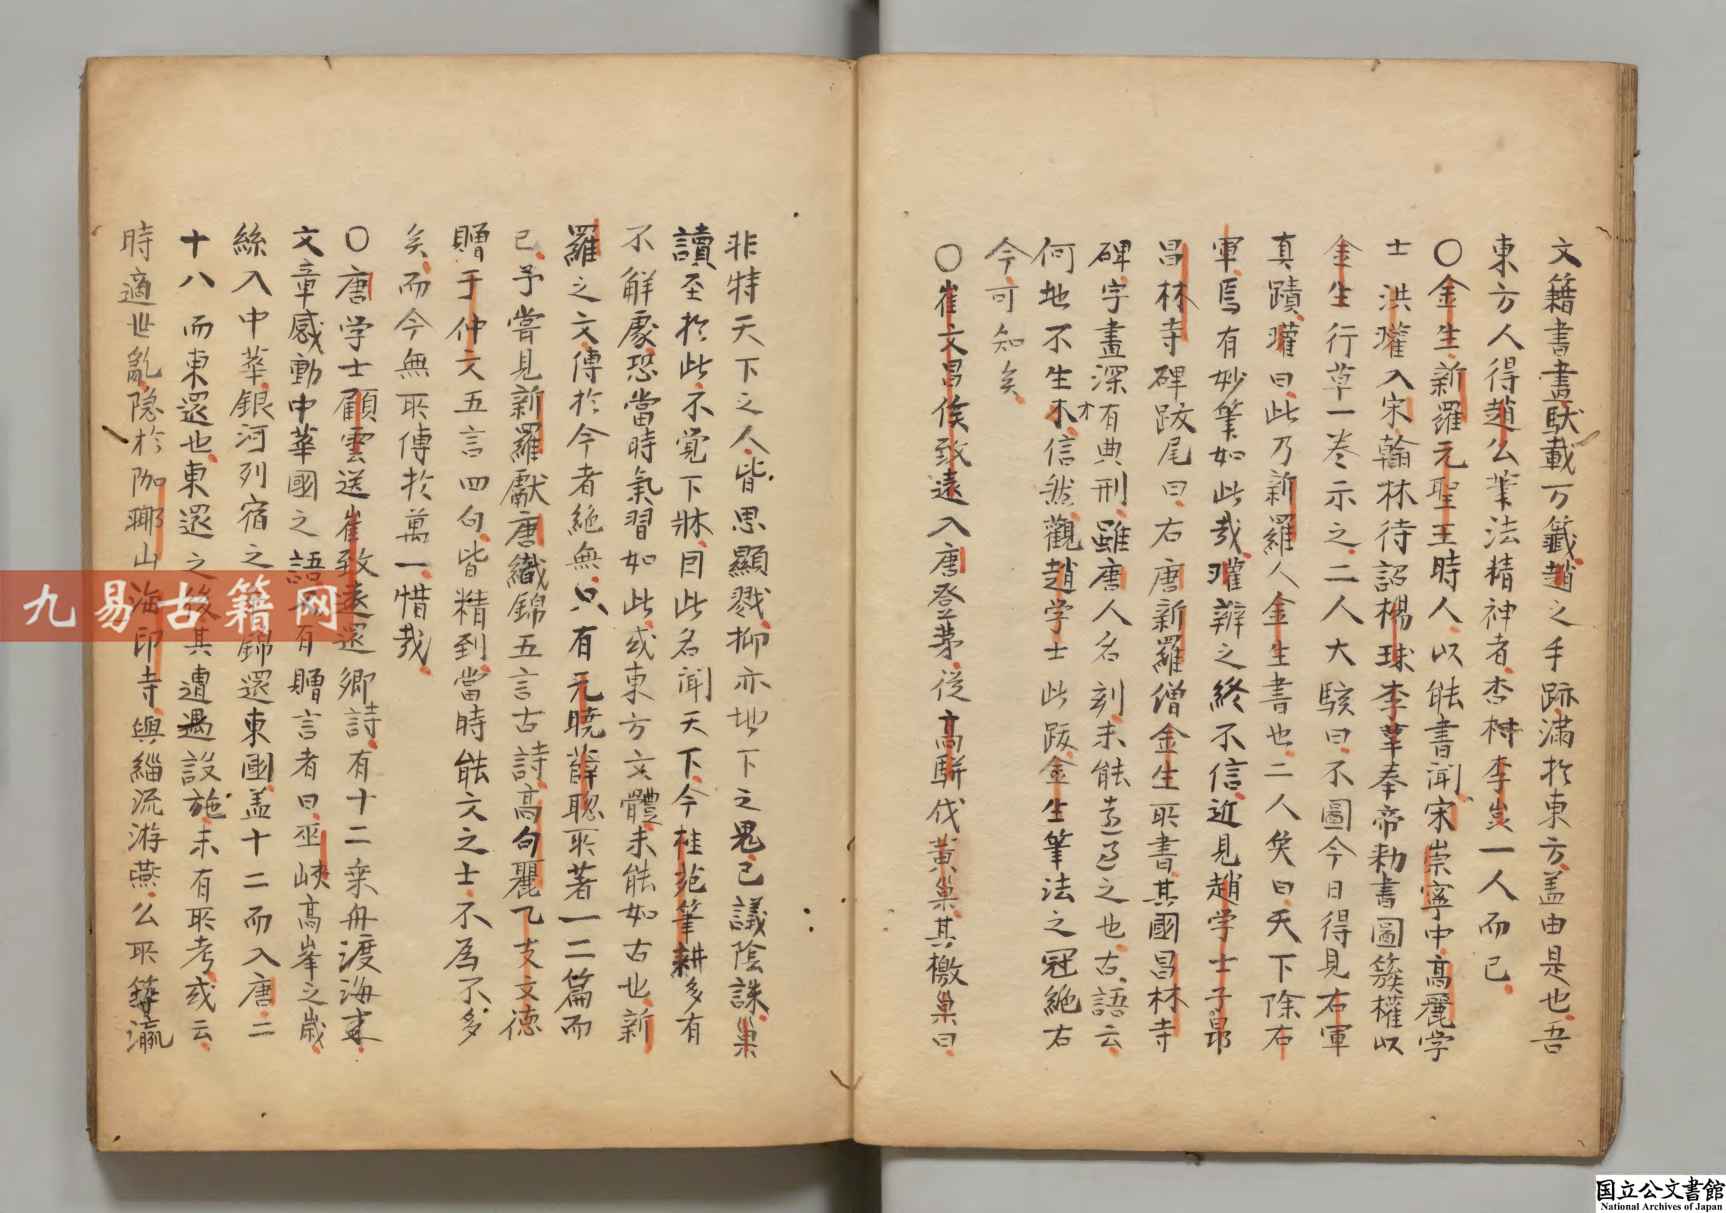 文籍書畫馱載万籤趙之手跡滿於東方盖由是也吾
東方人得趙公筆法精神者杏村李嵓一人而已
〇金生新羅元聖王時人以能書聞宋崇寧中高麗学
士洪瓘入宋翰林待詔楊球李革奉帝勅書圖簇權以
金生行草一卷示之二人大駭曰不圖今日得見右軍
真蹟瓘曰此乃新羅人金生書也二人笑曰天下除右
軍焉有妙筆如此哉瓘辨之終不信近見趙学士子昂
昌林寺碑跋尾曰右唐新羅僧金生所書其國昌林寺
碑字畫深有典刑雖唐人名刻未能遠過之也古語云
何地不生才信然觀趙学士此跋金生筆法之冠絶右
今可知矣
〇崔文昌侯致遠入唐登第從高駢伐黄巢其檄巢曰
非特天下之人皆思顯戮抑亦地下之鬼已議陰誅巢
讀至於此不覚下牀因此名聞天下今桂苑筆耕多有
不解處恐當時氣習如此或東方文體未能如古也新
羅之文傳於今者絶無只有元曉薛聡所著一二篇而
已予嘗見新羅獻唐織錦五言古詩高句麗乙支文德
贈于仲文五言四句皆精到當時能文之士不為不多
矣而今無所傳於萬一惜哉
〇唐学士顧雲送崔致遠還鄉詩有十二乘舟渡海来
文章感動中華國之語又有贈言者曰巫峽高峯之歲
絲入中華銀河列宿之 錦還東國盖十二而入唐二
十八而東還也東還之後其遭遇設施未有所考或云
時適世亂隠於伽耶山海印寺與緇流游燕么所築瀛
九易古籍网
国立公文書館
National Archives of Japan